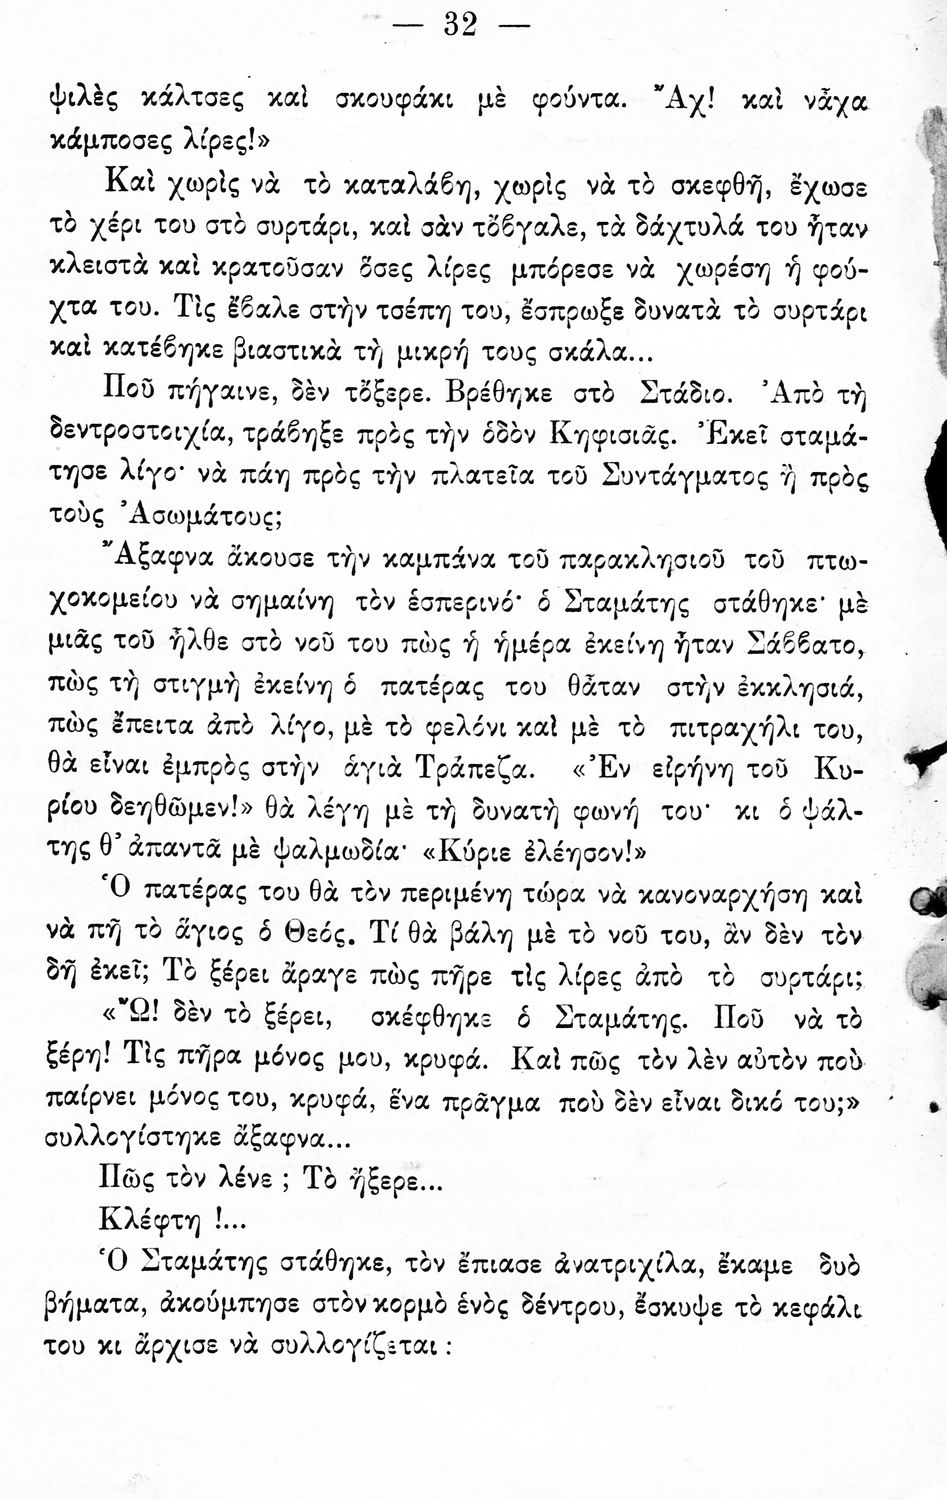 — 32 —
ψιλὲς κάλτσες καὶ σκουφάκι μὲ φούντα. Ἄχ! καὶ νἆχα
κάμποσες λίρες!»
Καὶ χωρὶς νὰ τὸ καταλάβῃ, χωρὶς νὰ τὸ σκεφθῇ, ἔχωσε
τὸ χέρι του στὸ συρτάρι, καὶ σὰν τὄβγαλε, τὰ δάχτυλά του ἦταν
κλειστὰ καὶ κρατοῦσαν ὅσες λίρες μπόρεσε νὰ χωρέσῃ ἡ φού-
χτα του. Τὶς ἔβαλε στὴν τσέπη του, ἔσπρωξε δυνατὰ τὸ συρτάρι
καὶ κατέβηκε βιαστικὰ τὴ μικρή τους σκάλα...
Ποῦ πήγαινε, δὲν τὄξερε. Βρέθηκε στὸ Στάδιο. Ἀπὸ τὴ
δεντροστοιχία, τράβηξε πρὸς τὴν ὁδὸν Κηφισιᾶς. Ἐκεῖ σταμά-
τησε λίγο· νὰ πάῃ πρὸς τὴν πλατεῖα τοῦ Συντάγματος ἢ πρὸς
τοὺς Ἀσωμάτους;
Ἄξαφνα ἄκουσε τὴν καμπάνα τοῦ παρακλησιοῦ τοῦ πτω-
χοκομείου νὰ σημαίνῃ τὸν ἑσπερινό· ὁ Σταμάτης στάθηκε· μὲ
μιᾶς τοῦ ἦλθε στὸ νοῦ του πὼς ἡ ἡμέρα ἐκείνη ἦταν Σάββατο,
πὼς τὴ στιγμὴ ἐκείνη ὁ πατέρας του θἆταν στὴν ἐκκλησιά,
πὼς ἔπειτα ἀπὸ λίγο, μὲ τὸ φελόνι καὶ μὲ τὸ πιτραχήλι του,
θὰ εἶναι ἐμπρὸς στὴν ἁγιὰ Τράπεζα. «Ἐν εἰρήνῃ τοῦ Κυ-
ρίου δεηθῶμεν!» θὰ λέγῃ μὲ τὴ δυνατὴ φωνή του· κι ὁ ψάλ-
της θ' ἀπαντᾶ μὲ ψαλμωδία· «Κύριε ἐλέησον!»
Ὁ πατέρας του θὰ τὸν περιμένῃ τώρα νὰ κανοναρχήσῃ καὶ
νὰ πῇ τὸ ἅγιος ὁ Θεός. Τί θὰ βάλῃ μὲ τὸ νοῦ του, ἂν δὲν τὸν
δῇ ἐκεῖ; Τὸ ξέρει ἄραγε πὼς πῆρε τὶς λίρες ἀπὸ τὸ συρτάρι;
«Ὤ! δὲν τὸ ξέρει, σκέφθηκε ὁ Σταμάτης. Ποῦ νὰ τὸ
ξέρῃ! Τὶς πῆρα μόνος μου, κρυφά. Καὶ πῶς τὸν λὲν αὐτὸν ποὺ
παίρνει μόνος του, κρυφά, ἕνα πρᾶγμα ποὺ δὲν εἶναι δικό του;»
συλλογίστηκε ἄξαφνα...
Πῶς τὸν λένε ; Τὸ ἤξερε...
Κλέφτη !...
Ὁ Σταμάτης στάθηκε, τὸν ἔπιασε ἀνατριχίλα, ἔκαμε δυὸ
βήματα, ἀκούμπησε στὸν κορμὸ ἑνὸς δέντρου, ἔσκυψε τὸ κεφάλι
του κι ἄρχισε νὰ συλλογίζεται :